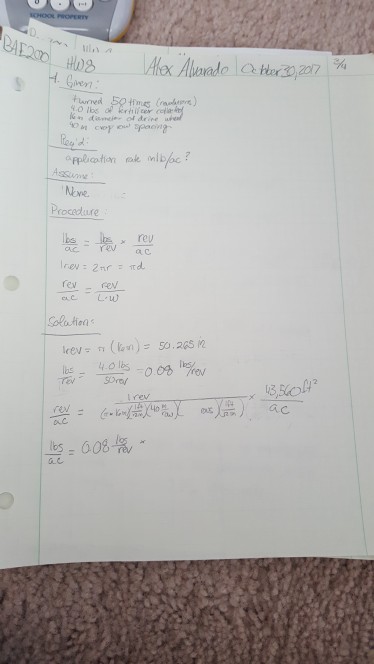 SCHOOL PROPERTY
BAE200 HW8 Alex Alvarado October 30, 2017 3/4
1. Given:
turned 50 times (revolutions)
4.0 lbs of fertilizer collected
16in diameter of drive wheel
40 in crop row spacing
Req'd:
application rate in lb/ac?
Assume:
None
Procedure:
lbs/ac = lbs/rev × rev/ac
1rev = 2πr = πd
rev/ac = rev/(L·W)
Solution:
1rev = π (16in) = 50.265 in
lbs/rev = 4.0 lbs/50rev = 0.08 lbs/rev
rev/ac = 1rev/(π·16in)(1ft/12in)(40 in/row)( rows)(1ft/12in) × 43,560 ft²/ac
lbs/ac = 0.08 lbs/rev ×